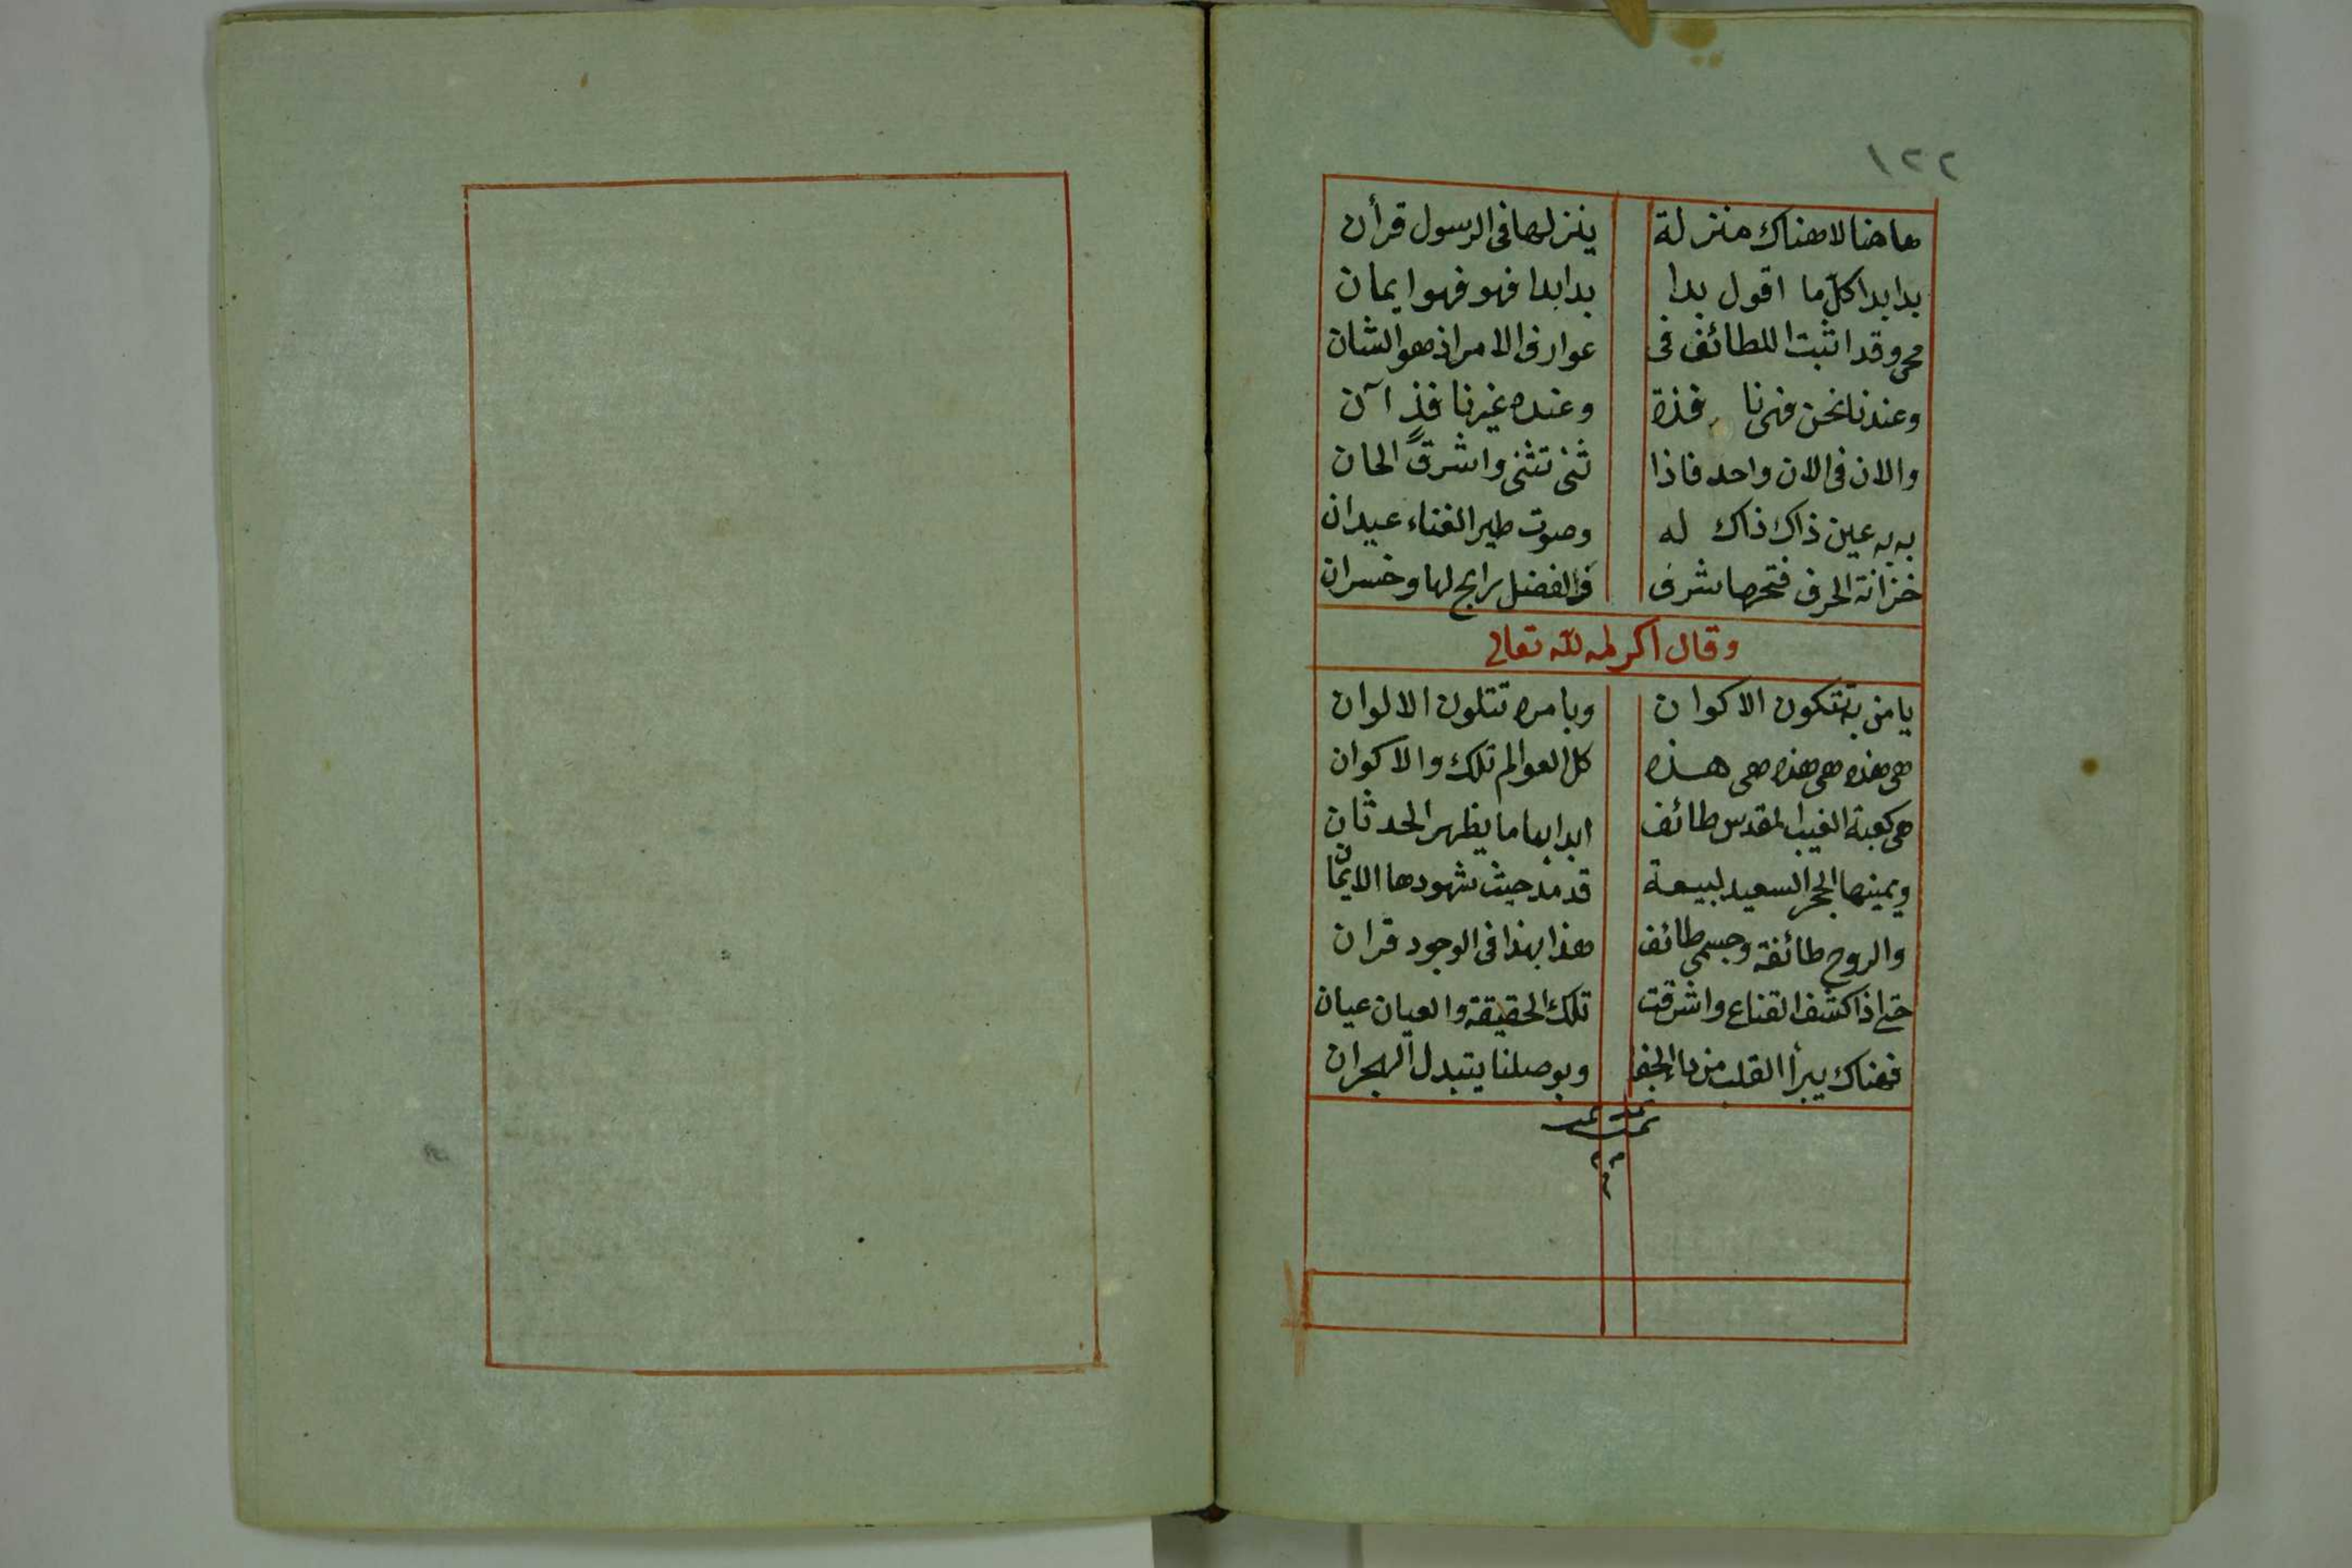 ١٢٢
هاهنا لا هناك منزلة ينزلها فى الرسول قرأن
بدا بدا كل ما اقول بدا بدا بدا فهو فهو ايمان
محى وقد اثبت اللطائف فى عوارف الامر اذ هو الشان
وعندنا نحن فهى نافذة وعنده غيرنا فذ آن
والان فى الان واحد فاذا ثنى تثنى واشرق الحان
به به عين ذاك ذاك له وصوت طير الغناء عيدان
خزانة الحرف فتحها شرف فى الفضل رابح لها وخسران
وقال اكرمه الله تعالى
يا من به تتكون الاكوان وبامره تتلون الالوان
هى هذه هى هذه هى هذه كل العوالم تلك والاكوان
هى كعبة الغيب المقدس طائف ابدا بها ما يظهر الحدثان
ويمينها الحجر السعيد لبيعة قد مد حيث شهودها الايمان
والروح طائفة وجسمى طائف هذا بهذا فى الوجود قران
حتى اذا كشف القناع واشرقت تلك الحقيقة والعيان عيان
فهناك يبرأ القلب من داء الجفا وبوصلنا يتبدل الهجران
تمت